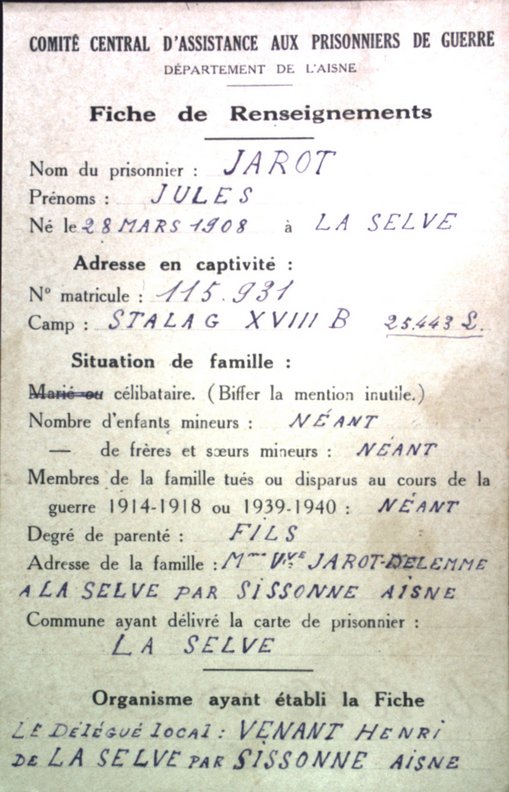 COMITÉ CENTRAL D'ASSISTANCE AUX PRISONNIERS DE GUERRE
DÉPARTEMENT DE L'AISNE
Fiche de Renseignements
Nom du prisonnier : JAROT
Prénoms : JULES
Né le 28 MARS 1908 à LA SELVE
Adresse en captivité :
N° matricule : 115.931
Camp : STALAG XVIII B 25.443 L.
Situation de famille :
Marié ou célibataire. (Biffer la mention inutile.)
Nombre d'enfants mineurs : NÉANT
— de frères et sœurs mineurs : NÉANT
Membres de la famille tués ou disparus au cours de la
guerre 1914-1918 ou 1939-1940 : NÉANT
Degré de parenté : FILS
Adresse de la famille : Mme Vve JAROT-DELEMME
A LA SELVE PAR SISSONNE AISNE
Commune ayant délivré la carte de prisonnier :
LA SELVE
Organisme ayant établi la Fiche
LE DÉLÉGUÉ LOCAL : VENANT HENRI
DE LA SELVE PAR SISSONNE AISNE